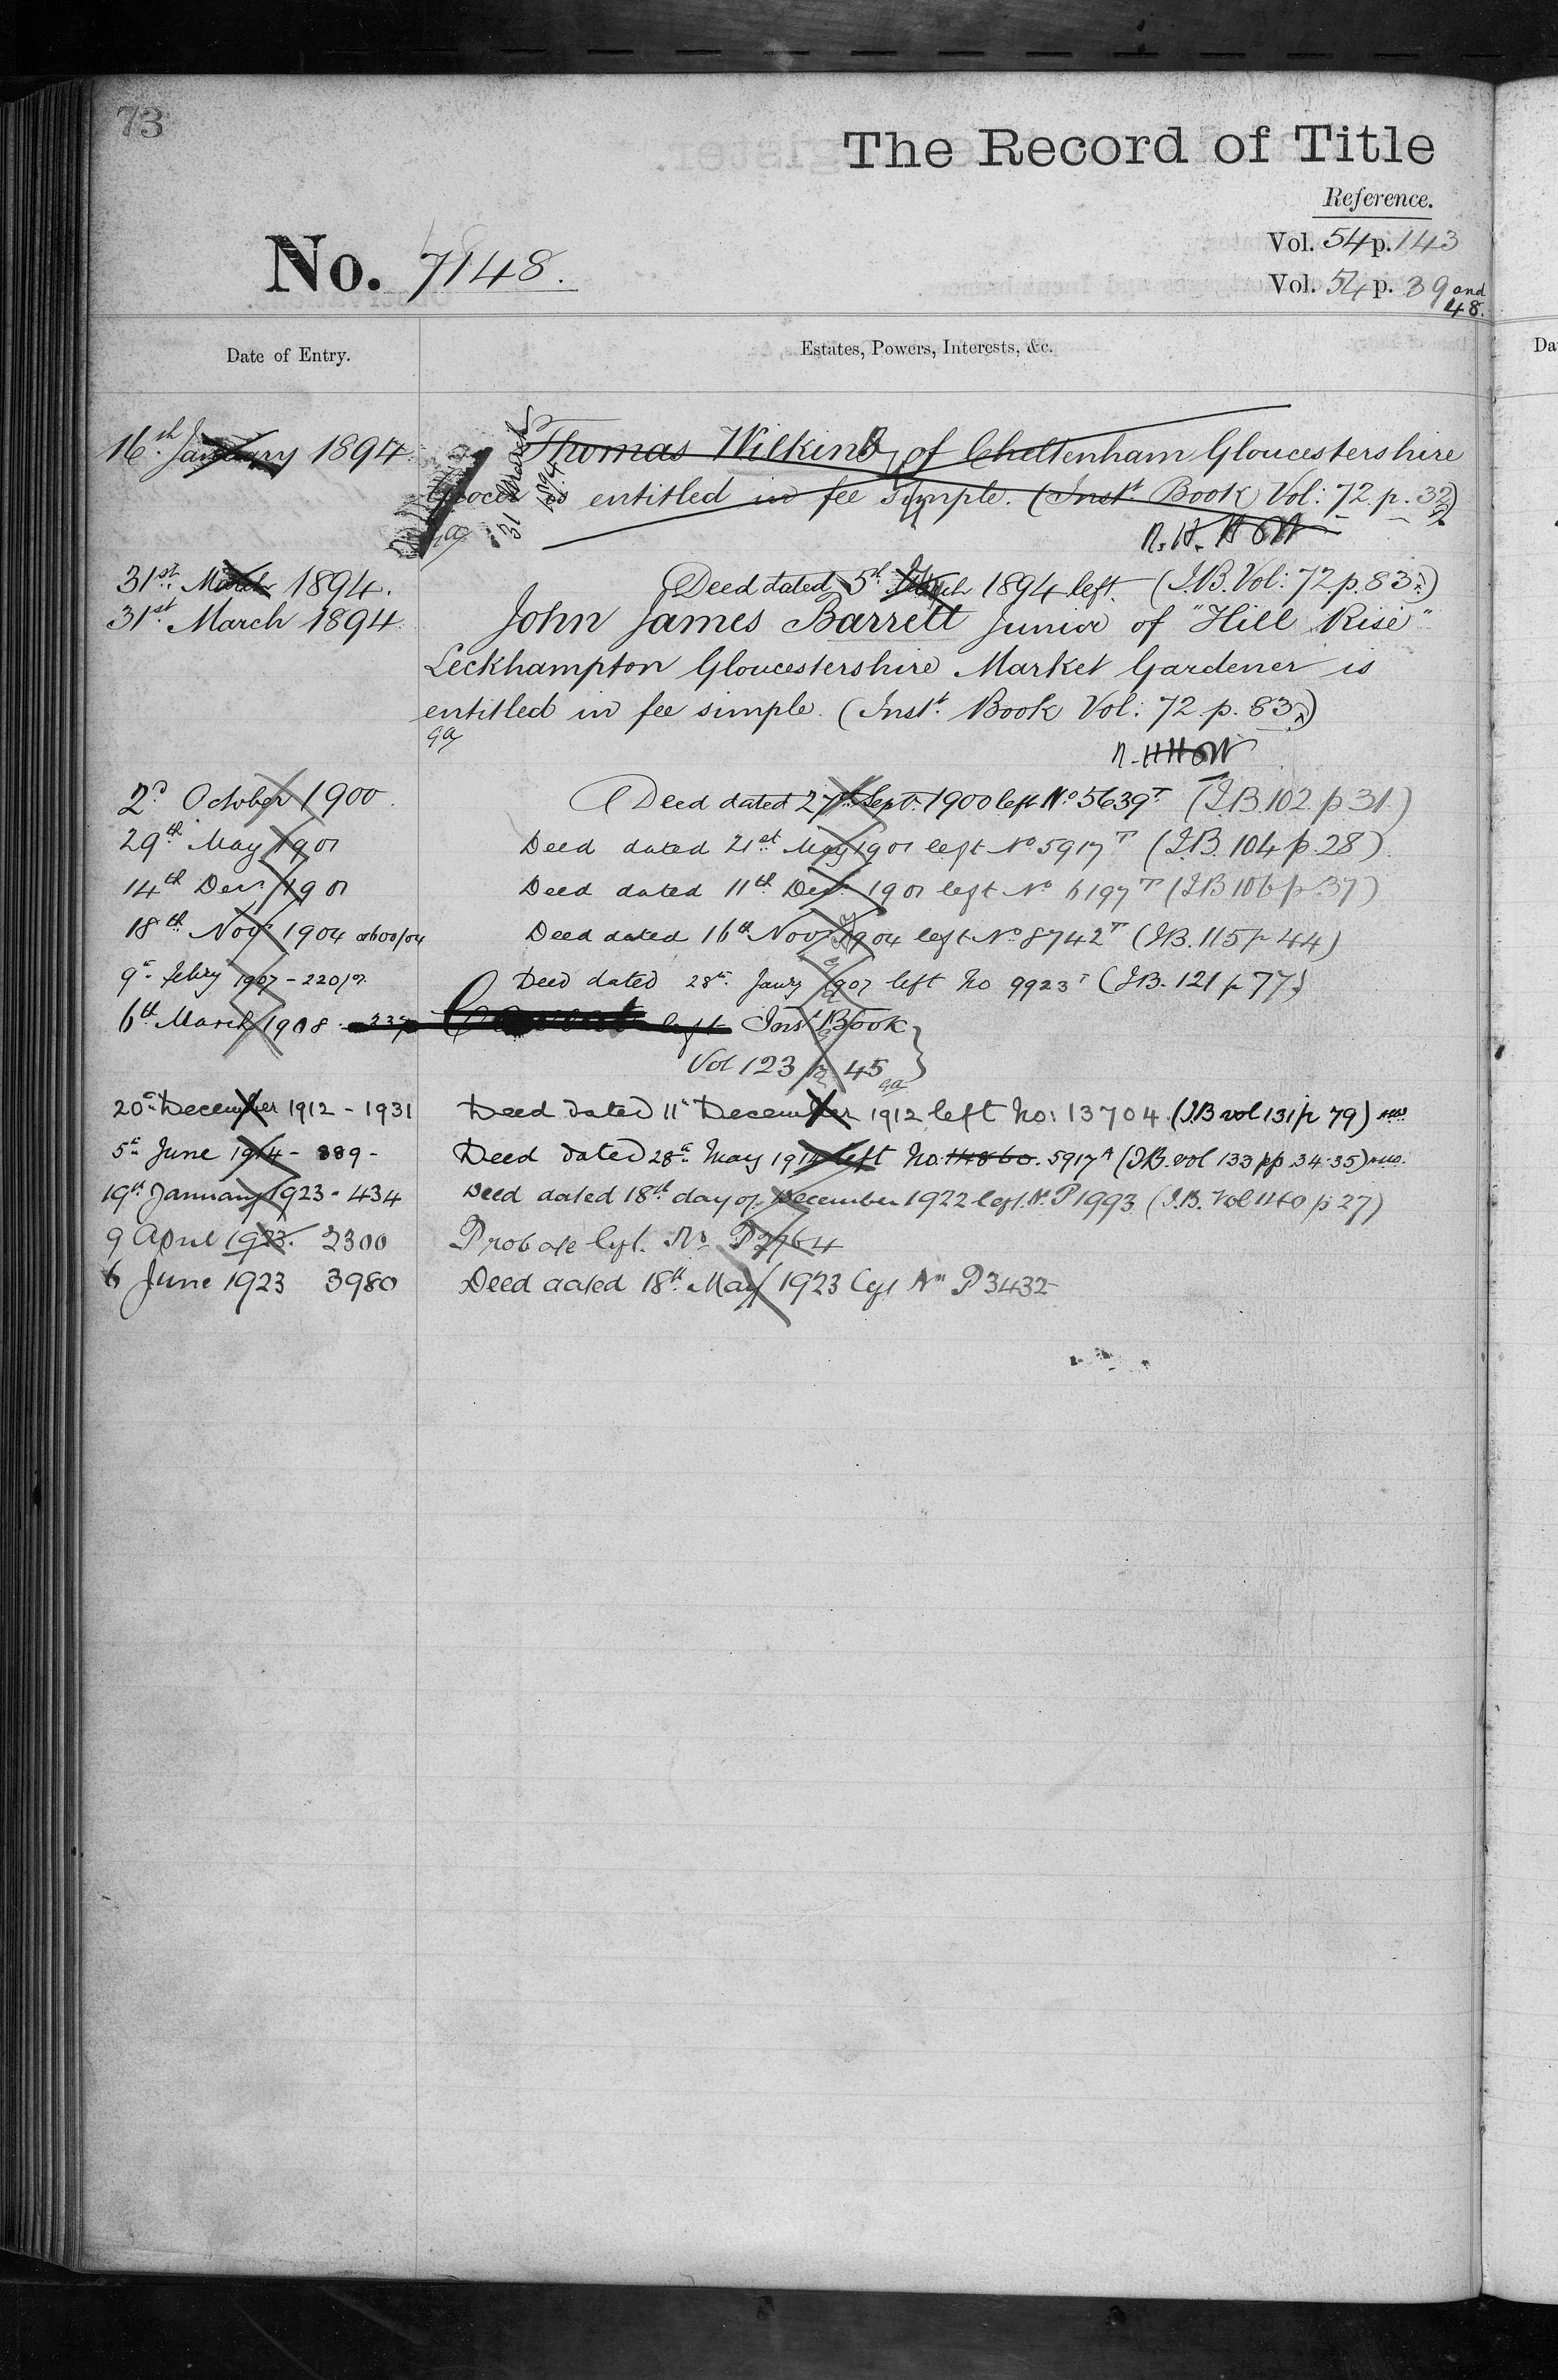 73
The Record of Title
Reference.
Vol. 54 p. 143
No. 7148.
Vol. 54 p. 39 and 48.
Date of Entry.
Estates, Powers, Interests, &c.
Da
16th January 1894.
Thomas Wilkins, of Cheltenham Gloucestershire
31 March 1894
Grocer is entitled in fee simple. (Inst. Book Vol: 72 p. 32)
31st March 1894. Deed dated 5th March 1894 left. (I.B. Vol: 72. p. 83)
31st March 1894. John James Barrett junior of "Hill Rise"
Leckhampton Gloucestershire Market Gardener is
entitled in fee simple. (Inst. Book Vol: 72. p. 83)
2d October 1900. Deed dated 27th Sept. 1900 left No 5639T (I.B. 102. p 31)
29th May 1901 Deed dated 21st May 1901 left No 5917T (I.B. 104 p. 28)
14th Decr 1901 Deed dated 11th Decr 1901 left No 6197T (I.B 106 p 37)
18th Novr 1904 Deed dated 16th Novr 1904 left No 8742T (I.B. 115 p 44)
9th Febry 1907 - 220/07 Deed dated 28th Janry 1907 left No 9923T (I.B. 121 p 77)
6th March 1908 left Inst Book
Vol 123 p 45
20th December 1912 - 1931 Deed dated 11th December 1912 left No: 13704 (I.B vol 131 p 79)
5th June 1914 - 889 - Deed dated 28th May 1914 left No. 14860. 5917A (I.B. vol 133 pp 34-35)
19th January 1923 - 434 Deed dated 18th day of December 1922 left No P1993 (I.B. Vol 140 p 27)
9 April 1923. 2300 Probate left. No P2764
6 June 1923 3980 Deed dated 18th May 1923 left No P3432